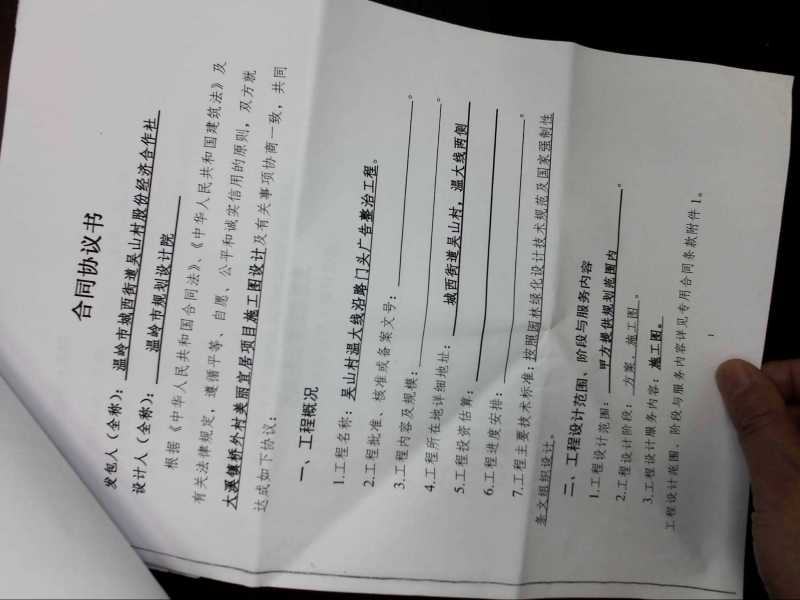 合同协议书
发包人（全称）：温岭市城西街道吴山村股份经济合作社
设计人（全称）：温岭市规划设计院
根据《中华人民共和国合同法》、《中华人民共和国建筑法》及
有关法律规定，遵循平等、自愿、公平和诚实信用的原则，双方就
大溪镇桥外村美丽宜居项目施工图设计及有关事项协商一致，共同
达成如下协议：
一、工程概况
1.工程名称：吴山村温大线沿路门头广告整治工程。
2.工程批准、核准或备案文号：。
3.工程内容及规模：。
4.工程所在地详细地址：城西街道吴山村，温大线两侧
5.工程投资估算：
6.工程进度安排：。
7.工程主要技术标准：按照园林绿化设计技术规范及国家强制性
条文组织设计。
二、工程设计范围、阶段与服务内容
1.工程设计范围：甲方提供规划范围内。
2.工程设计阶段：方案、施工图。
3.工程设计服务内容：施工图。
工程设计范围、阶段与服务内容详见专用合同条款附件1。
1